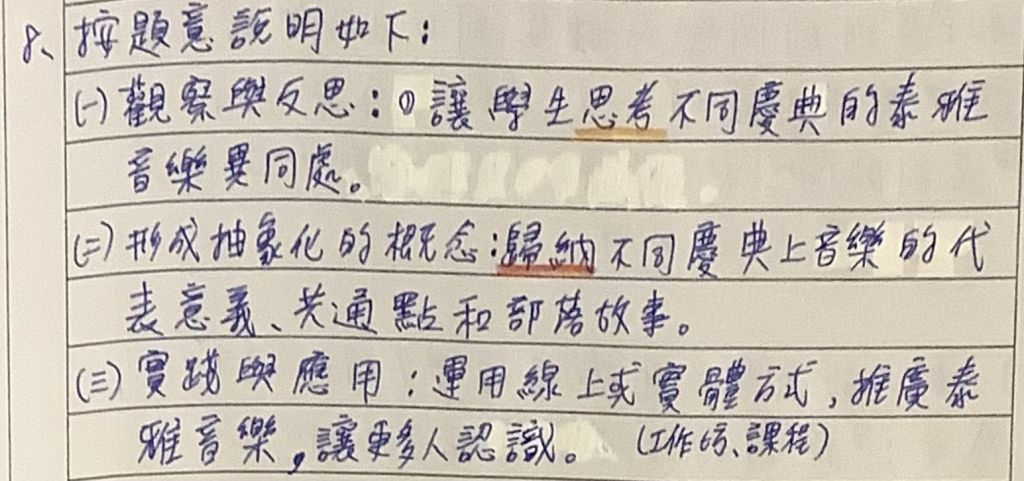 8、按題意說明如下：
(一)觀察與反思：①讓學生思考不同慶典的泰雅
音樂異同處。
(二)形成抽象化的概念：歸納不同慶典上音樂的代
表意義、共通點和部落故事。
(三)實踐與應用：運用線上或實體方式，推廣泰
雅音樂，讓更多人認識。(工作坊、課程)